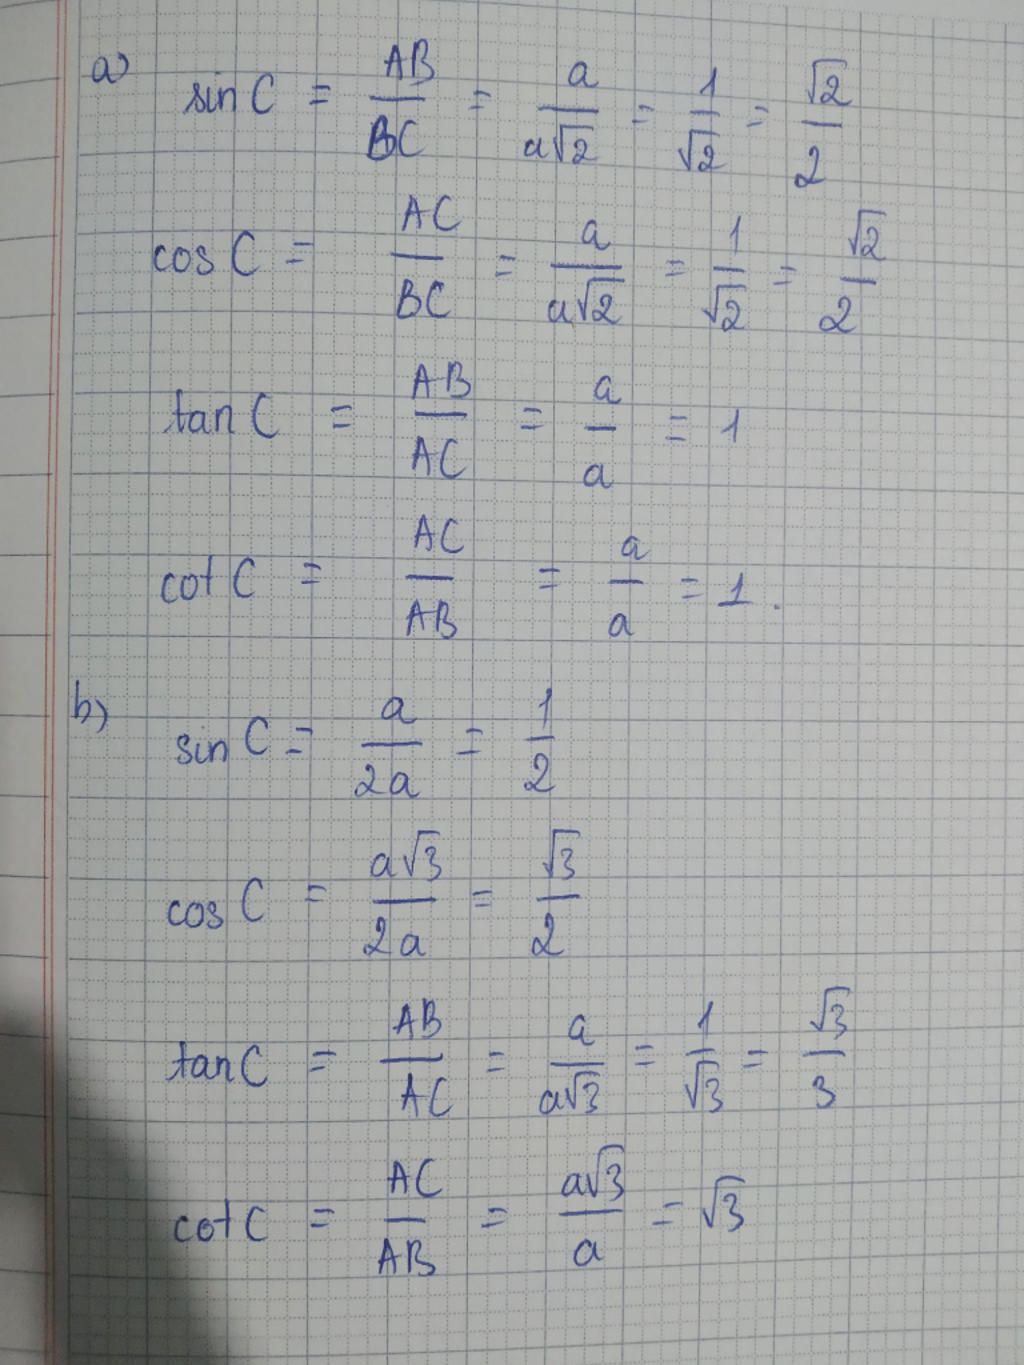 a) sin C = AB/BC = a/a√2 = 1/√2 = √2/2
cos C = AC/BC = a/a√2 = 1/√2 = √2/2
tan C = AB/AC = a/a = 1
cot C = AC/AB = a/a = 1.
b) sin C = a/2a = 1/2
cos C = a√3/2a = √3/2
tan C = AB/AC = a/a√3 = 1/√3 = √3/3
cot C = AC/AB = a√3/a = √3